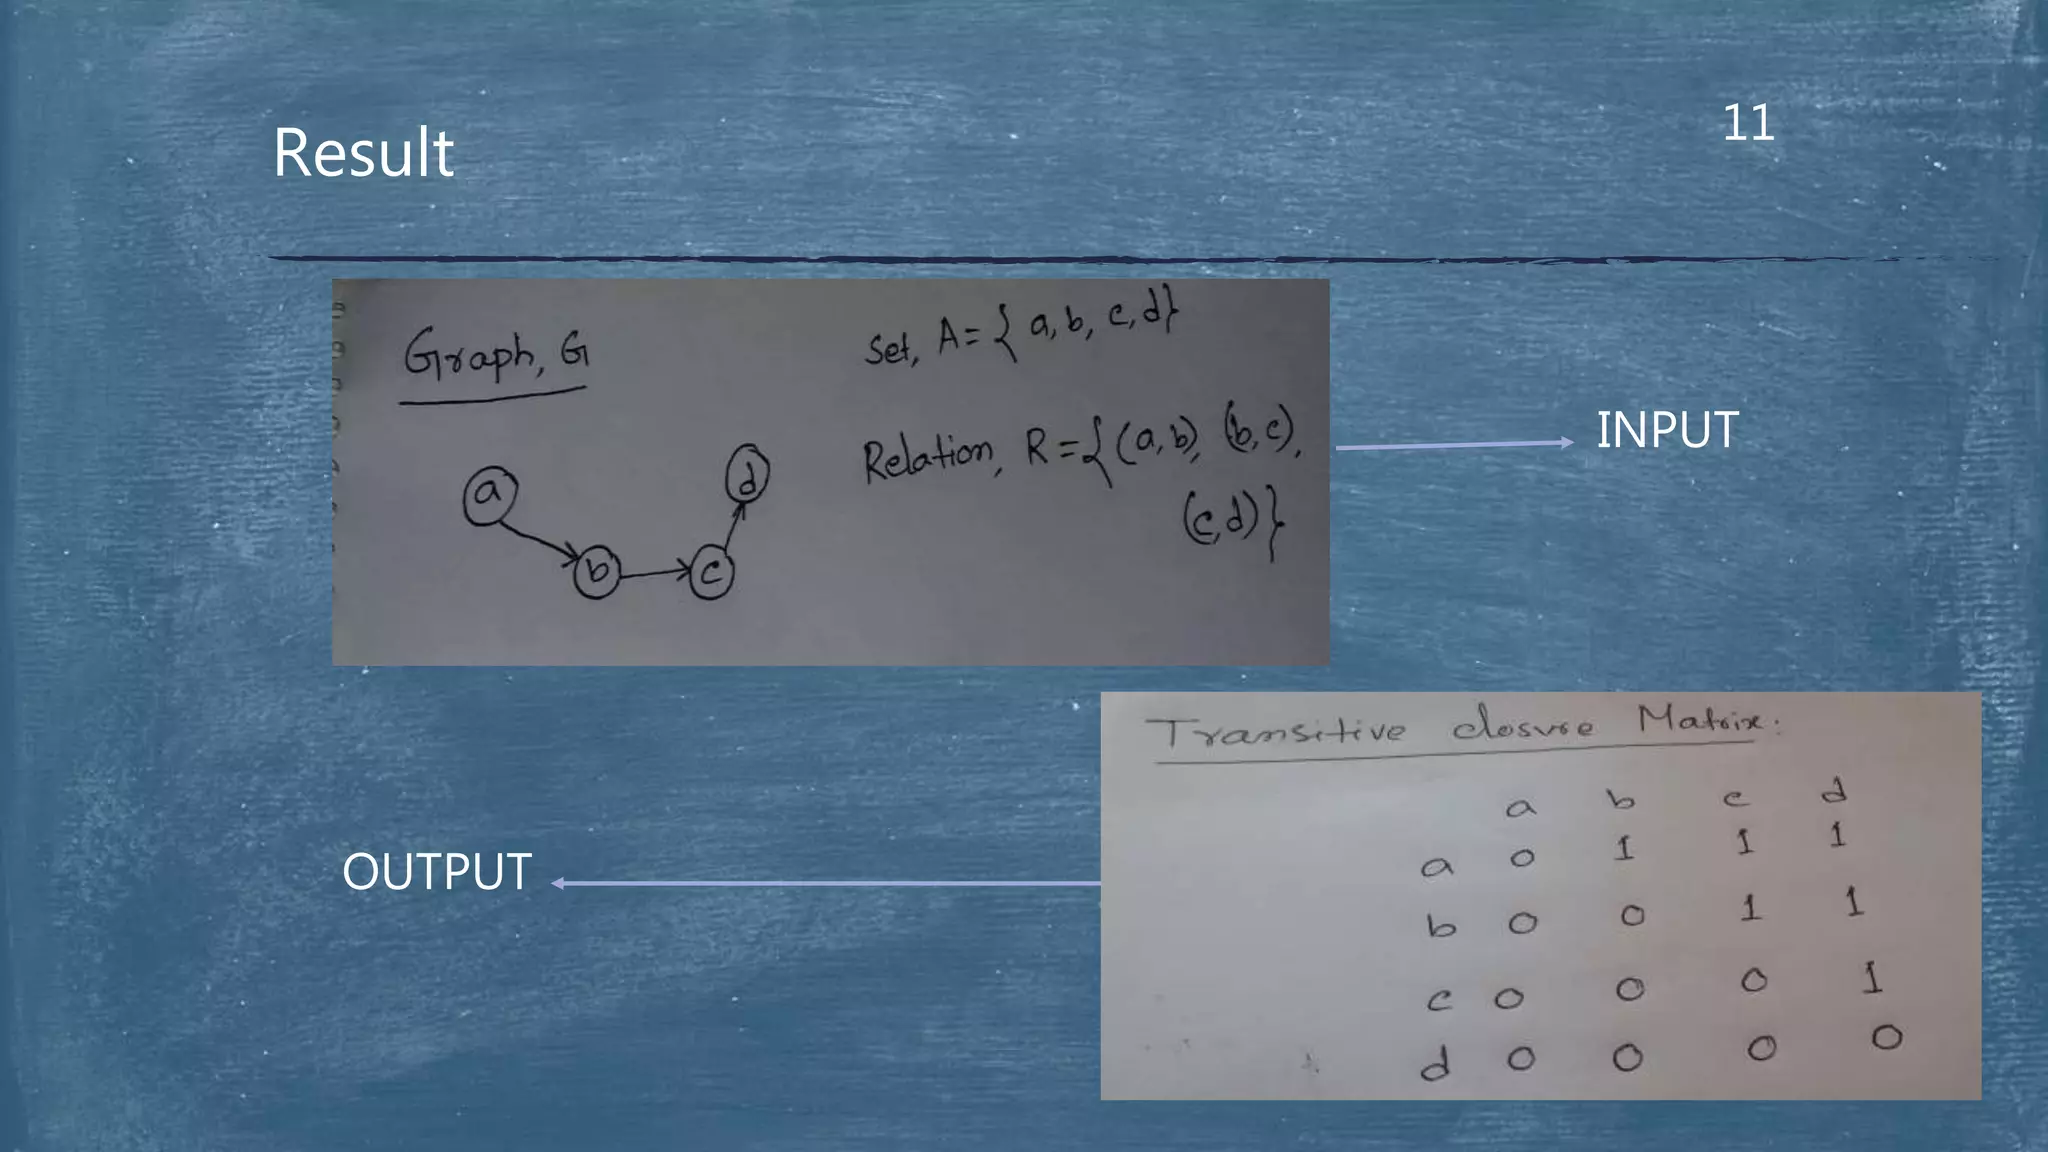 Result
11
Graph, G
Set, A = { a, b, c, d}
Relation, R = { (a, b), (b, c),
(c, d) }
a
d
b
c
INPUT
Transitive closure Matrix:
a b c d
a 0 1 1 1
b 0 0 1 1
c 0 0 0 1
d 0 0 0 0
OUTPUT